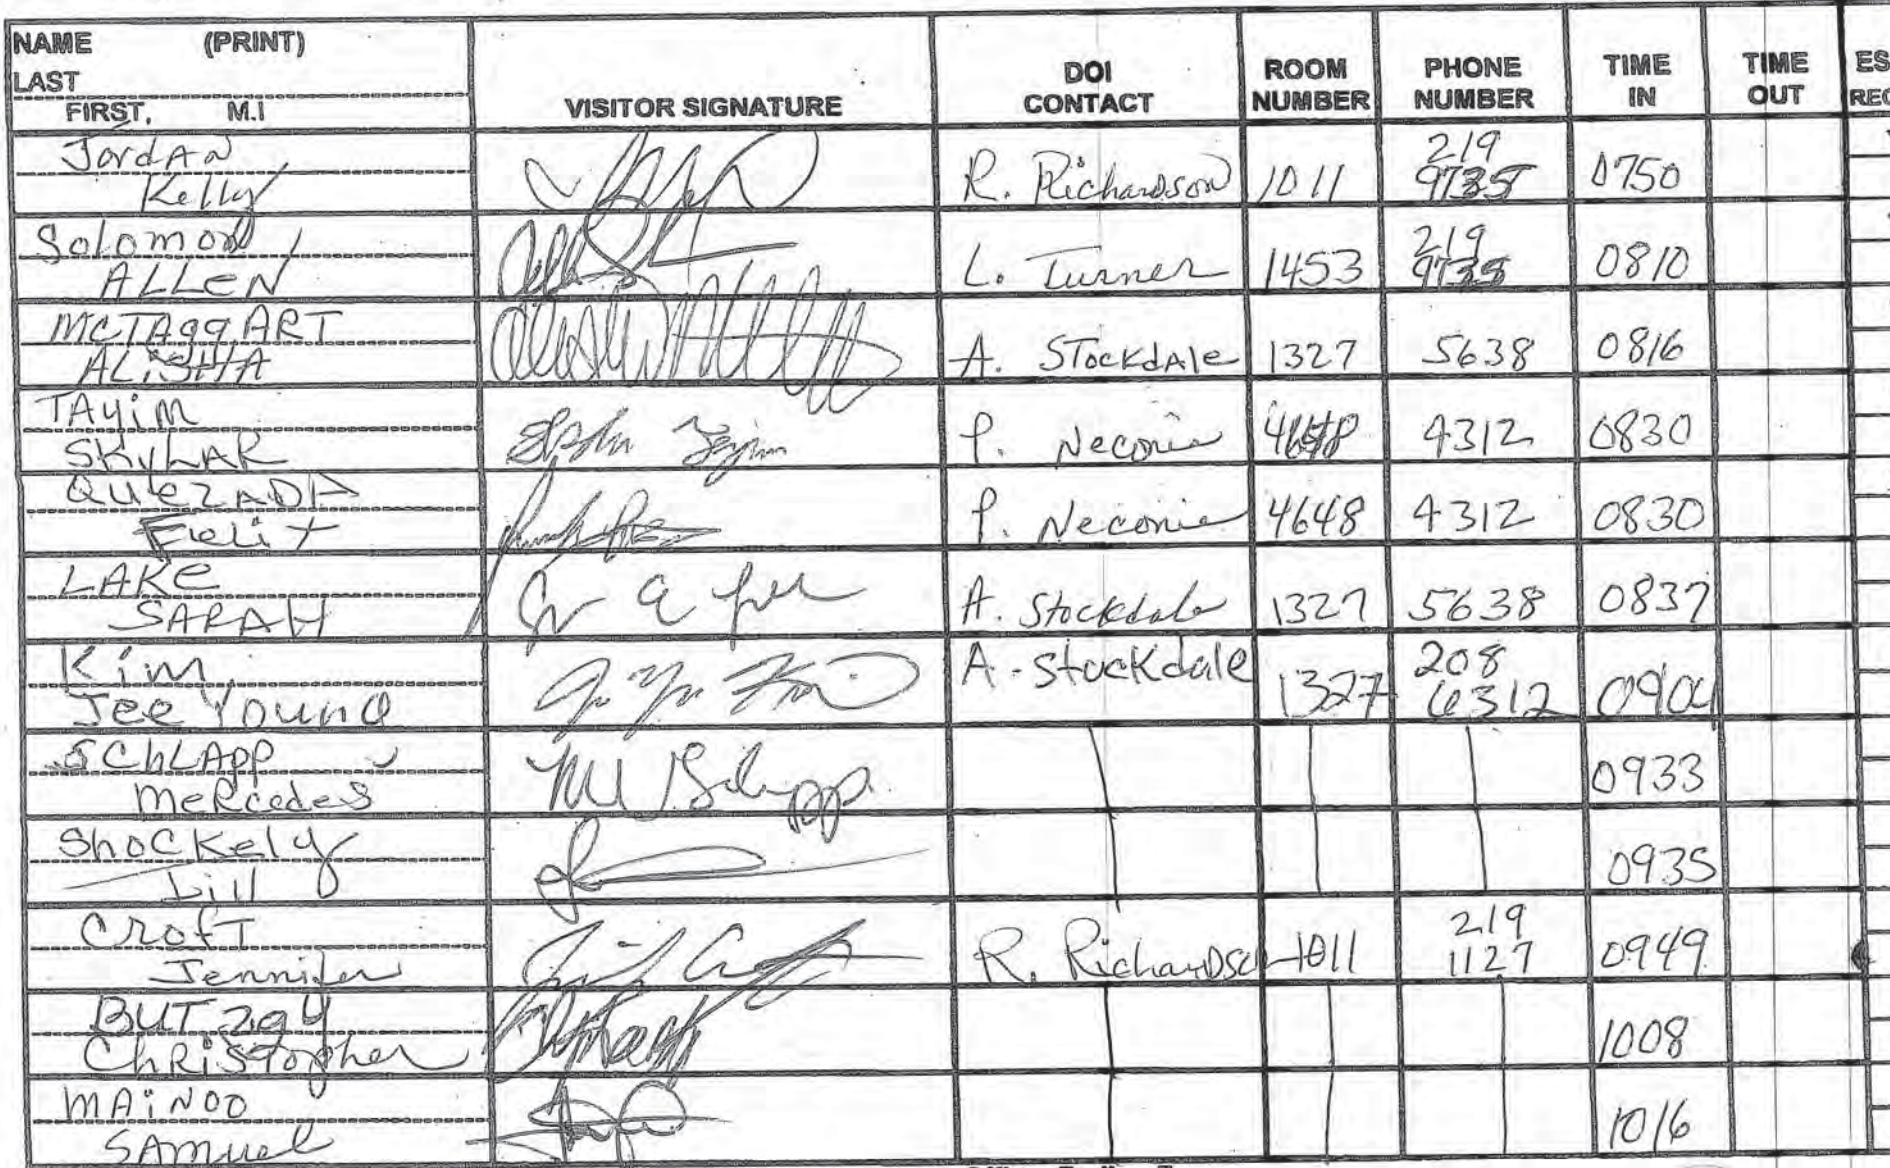 NAME (PRINT)
LAST
FIRST, M.I
VISITOR SIGNATURE
DOI
CONTACT
ROOM
NUMBER
PHONE
NUMBER
TIME
IN
TIME
OUT
ES
REC
JordAN
Kelly
R. Richardson 1011 219 9735 0750
Solomon
ALLEN
L. Turner 1453 219 9735 0810
McTAggART
ALiSHA
A. STockdAle 1327 5638 0816
TAyim
SKyLAR
P. Neconie 4648 4312 0830
QuezADA
Felix
P. Neconie 4648 4312 0830
LAKe
SARAH
A. Stockdale 1327 5638 0837
Kim
Jee Young
A. Stockdale 1327 208 6312
SCHLApp
MeRcedes
0933
ShocKely
0935
CRofT
Jennifer
R. Richardson 1011 219 1127 0949
BUTzgy
ChRistopher
1008
MAiNOO
SAmuel
1016